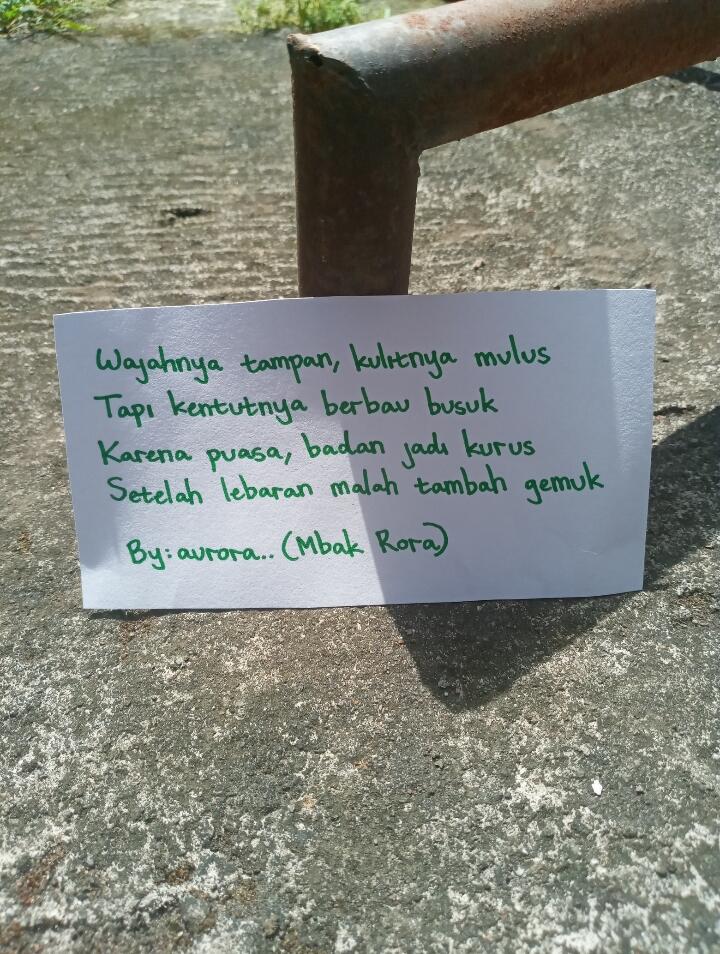 Wajahnya tampan, kulitnya mulus
Tapi kentutnya berbau busuk
Karena puasa, badan jadi kurus
Setelah lebaran malah tambah gemuk
By: aurora.. (Mbak Rora)